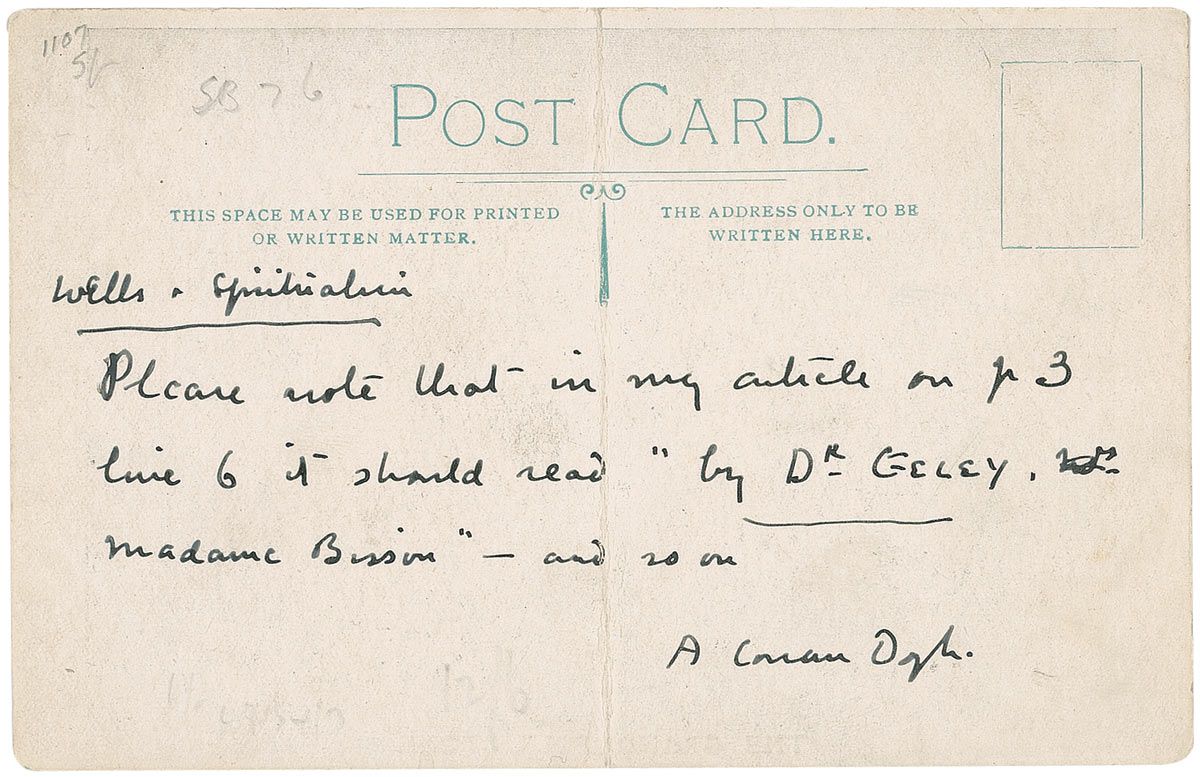 1107
SB 76
POST CARD.
THIS SPACE MAY BE USED FOR PRINTED
OR WRITTEN MATTER.
THE ADDRESS ONLY TO BE
WRITTEN HERE.
Wells & Spiritualism
Please note that in my article on p 3
line 6 it should read " by Dr GELEY,
Madame Bisson" — and so on
A Conan Doyle.